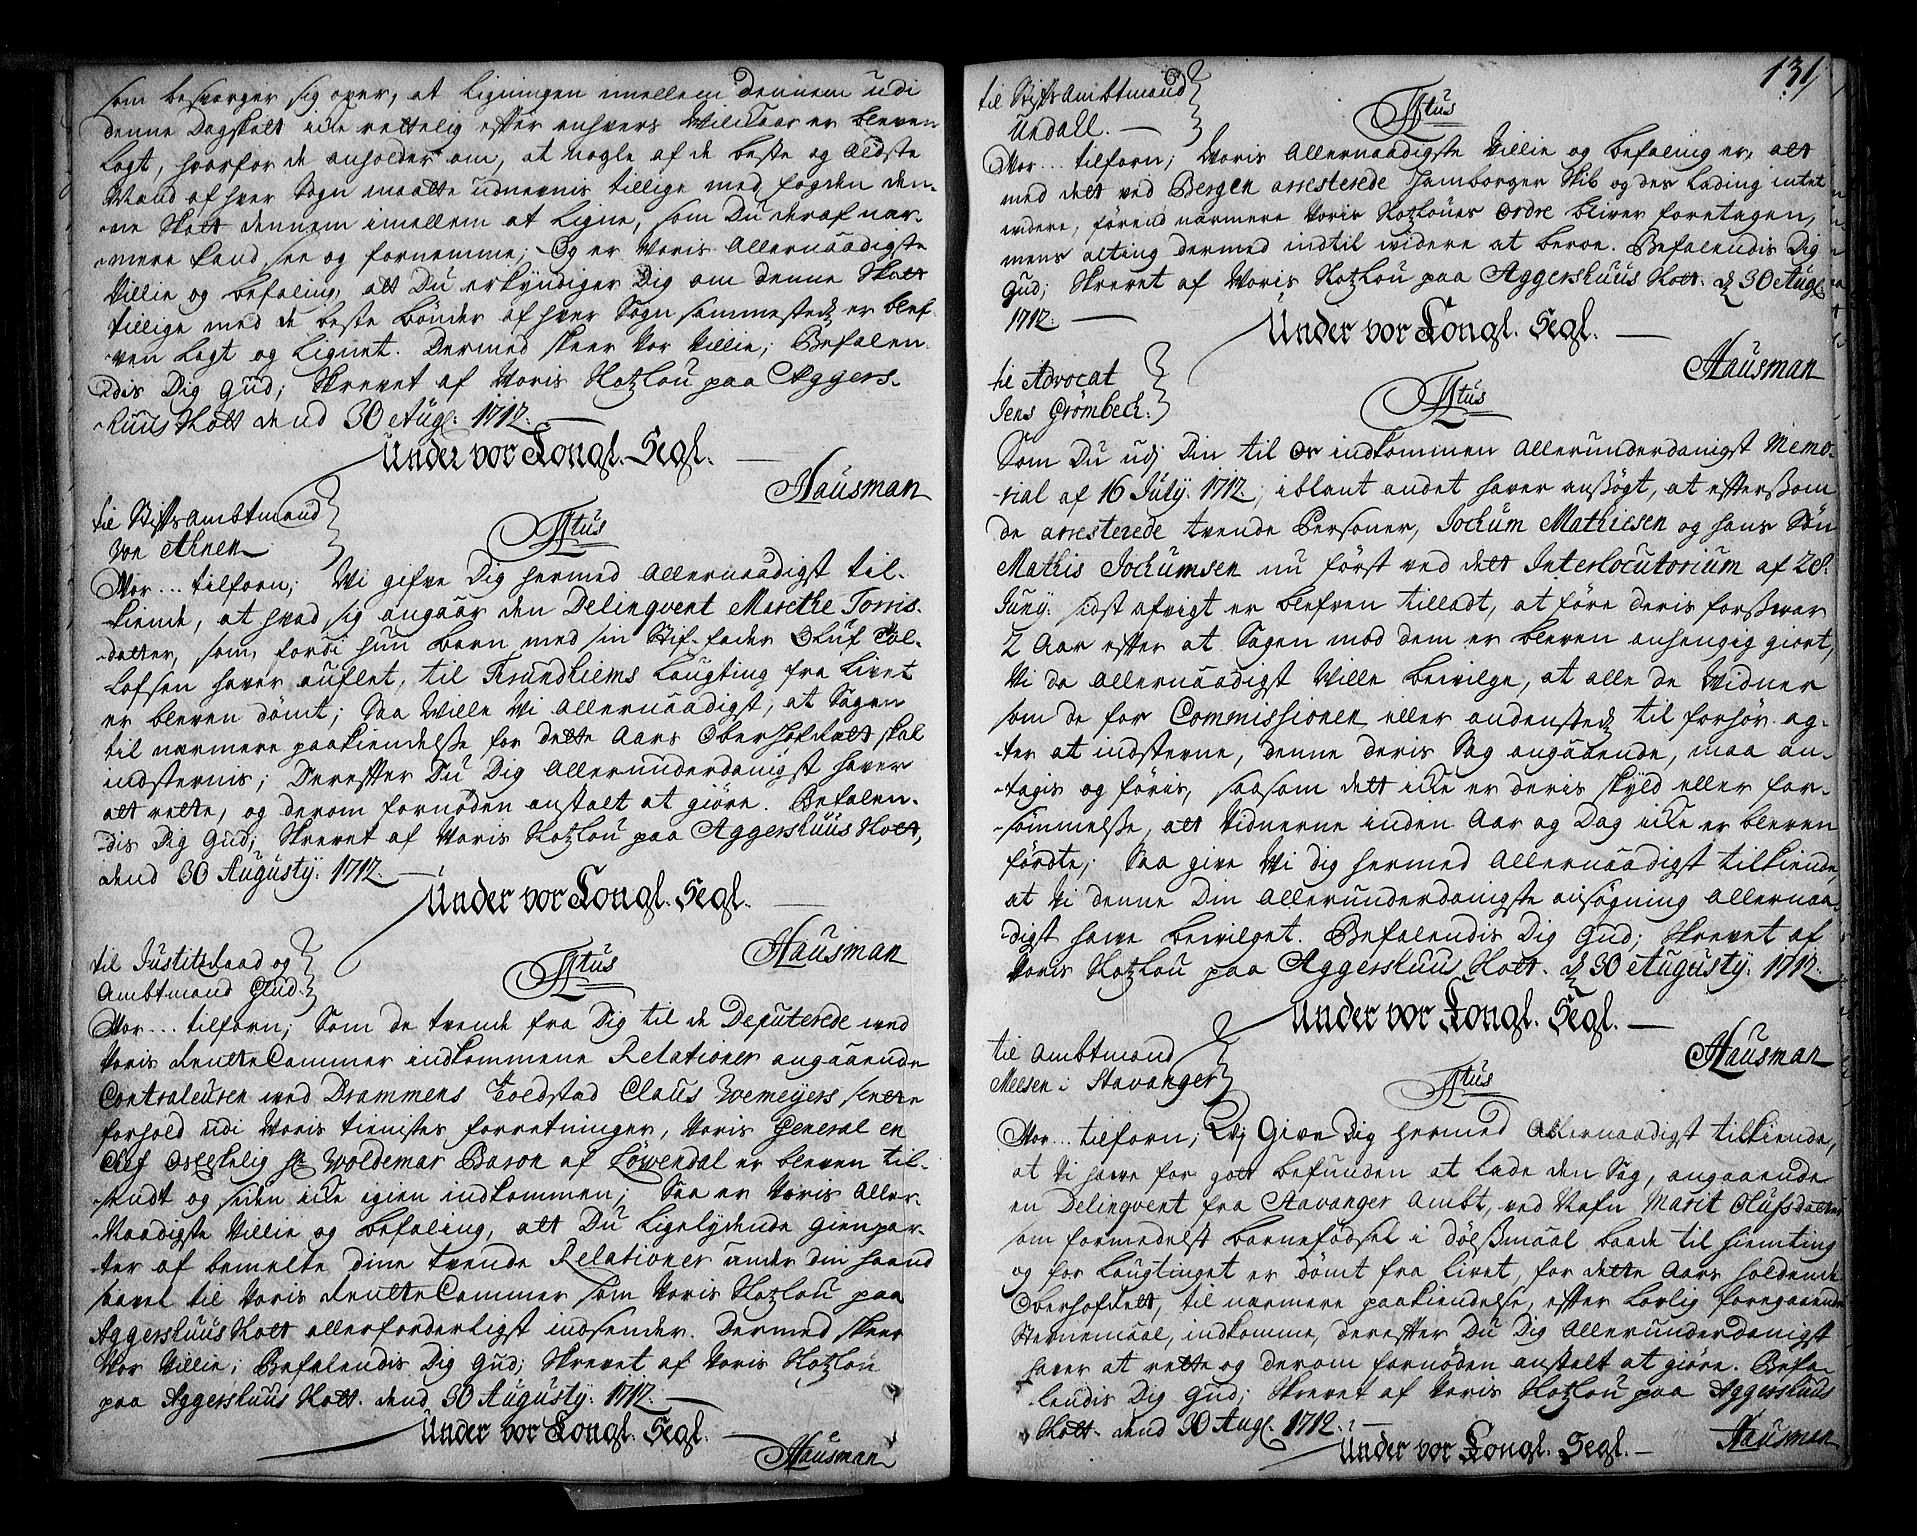 som besværger sig over, at Ligningen imellem Dennem udi
denne Dagskatt icke rettelig efter enhvers Vilckaar er bleven
Lagt, hvorfor de anholder om, at nogle af de beste og Ældste
Mænd af hver Sogn maatte udnevnis tillige med fogden den-
-ne Skatt dennem imellem at Ligne, som Du deraf nær-
-mere kand see og fornemme; Og er Voris Allernaadigste
Villie og befaling, att Du erkyndiger Dig om denne Skatt
tillige med de beste bönder af hver Sogn sammestedz er blef-
-ven Lagt og Lignet. Dermed skeer Vor Villie; Befalen-
-dis Dig Gud; Skrevet af Voris Slotzlou paa Aggers-
-huus Slott dend 30 Aug. 1712.
Under vor Kongl. Segl.
Hausman
til StiftsAmbtmand
von Ahnen
Ttus
Vor... tilforn; Vi gifve Dig hermed Allernaadigst til-
-kiende, at hvad sig angaar den Delinqvent Marethe Torris-
-datter, som, fordi hun barn med sin Stif-fader Oluf Tol-
-lofsen haver auflet, til Trundhiems Laugting fra Livet
er bleven dömt; Saa Wille Vi Allernaadigst, at Sagen
til nærmere paakiendelse for dette Aars Oberhofdrett skal
indsternis; Derefter Du Dig Allerunderdanigst haver
att rette, og derom fornöden anstalt at giöre. Befalen-
-dis Dig Gud; Skrevet af Voris Slotzlou paa Aggershuus Slott,
dend 30 Augusty. 1712.
Under vor Kongl. Segl.
Hausman
til Justitzraad og
Ambtmand Gud.
Ttus
Vor... tilforn; Som de tvende fra Dig til de Deputerede ved
Voris RentteCammer indkommene Relationer angaaende
Contraleuren ved Drammens Toldstad Claus Wemeyers slette
forhold udi Voris tienistes forretninger, Voris General en
Chef Osfshelig Hr Woldemar Baron af Löwendal er bleven til-
-sendt og siden icke igien indkommen; Saa er Voris Aller-
-naadigste Villie og befaling, att Du Ligelydende gienpar-
-ter af bemelte dine tvende Relationer under din haand
saavel til Voris RentteCammer som Voris Slotzlou paa
Aggershuus Slott allerforderligst indsender. Dermed skeer
Vor Villie; Befalendis Dig Gud; Skrevet af Voris Slotzlou
paa Aggershuus Slott. dend 30 Augusty. 1712.
Under vor Kongl. Segl.
Hausman
131
til StiftsAmbtmand
Undall.
Ttus
Vor... tilforn; Voris Allernaadigste Villie og befaling er, att
med dett ved Bergen arresterede Hamborger Skib og des Lading intet
widere, förend nærmere Voris Slotzloues Ordre bliver foretagen,
mens alting dermed indtil widere at beroe. Befalendis Dig
Gud; Skrevet af Voris Slotzlou paa Aggershuus Slott. d 30 Aug.
1712.
Under vor Kongl. Segl.
Hausman
til Advocat
Jens Grömbech.
Ttus
Som Du udj Din til os indkommen Allerunderdanigst Memo-
-rial af 16 July. 1712, iblant andet haver ansögt, at eftersom
de arresterede tvende Personer, Jochum Mathiesen og hans Sön
Mathis Jochumsen nu först ved dett Interlocutorium af 28.
Juny. sidst afvigt er blefven tilladt, at före deris forsvar
2 Aar efter at Sagen mod dem er bleven anhengig giort,
Vi da Allernaadigst Wille bewilge, at alle de Widner
som de for Commissionen eller andenstedz til forhör ag-
-ter at indsterne, denne deris Sag angaaende, maa an-
-tagis og föris, saasom dett icke er deris skyld eller for-
-sömmelse, att Vidnerne inden Aar og Dag icke er bleven
fördte; Saa give Vi dig hermed Allernaadigst tilkiende,
at Vi denne Din Allerunderdanigste ansögning Allernaa-
-digst have bewilget. Befalendis Dig Gud; Skrevet af
Voris Slotzlou paa Aggershuus Slott. d 30 Augusty. 1712.
Under vor Kongl. Segl.
Hausman
til Ambtmand
Neesen i Stavanger
Ttus
Vor... tilforn; Vj Give Dig hermed Allernaadigst tilkiende,
at Vi have for gott befunden at lade den Sag, angaaende
en Delinqvent fra Stavanger Ambt, ved Nafn Marit Olufsdatter
som formedelst barnefödsel i dölsmaal baade til hiemting
og for Laugtinget er dömt fra livet, for dette Aars holdende
Oberhofdrett, til nærmere paakiendelse, efter Lovlig foregaaende
Sternemaal, indkomme, derefter Du Dig Allerunderdanigst
haver at rette og derom fornöden anstalt at giöre. Befa-
-lendis Dig Gud; Skrevet af Voris Slotzlou paa Aggershuus
Slott. dend 30 Aug. 1712.
Under vor Kongl. Segl.
Hausman